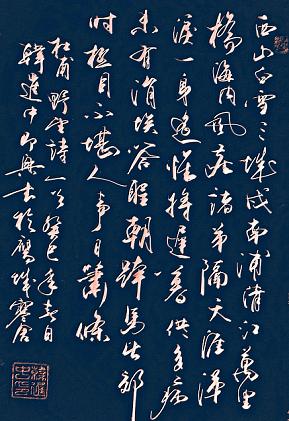 西山白雪三城戍南浦清江萬里
橋海内風塵諸弟隔天涯涕
淚一身遙惟將遲暮供多病
未有涓埃答聖朝跨馬出郊
時極目不堪人事日蕭條
杜甫野望詩一首癸巳年春日
韓進中即興書於鷹城